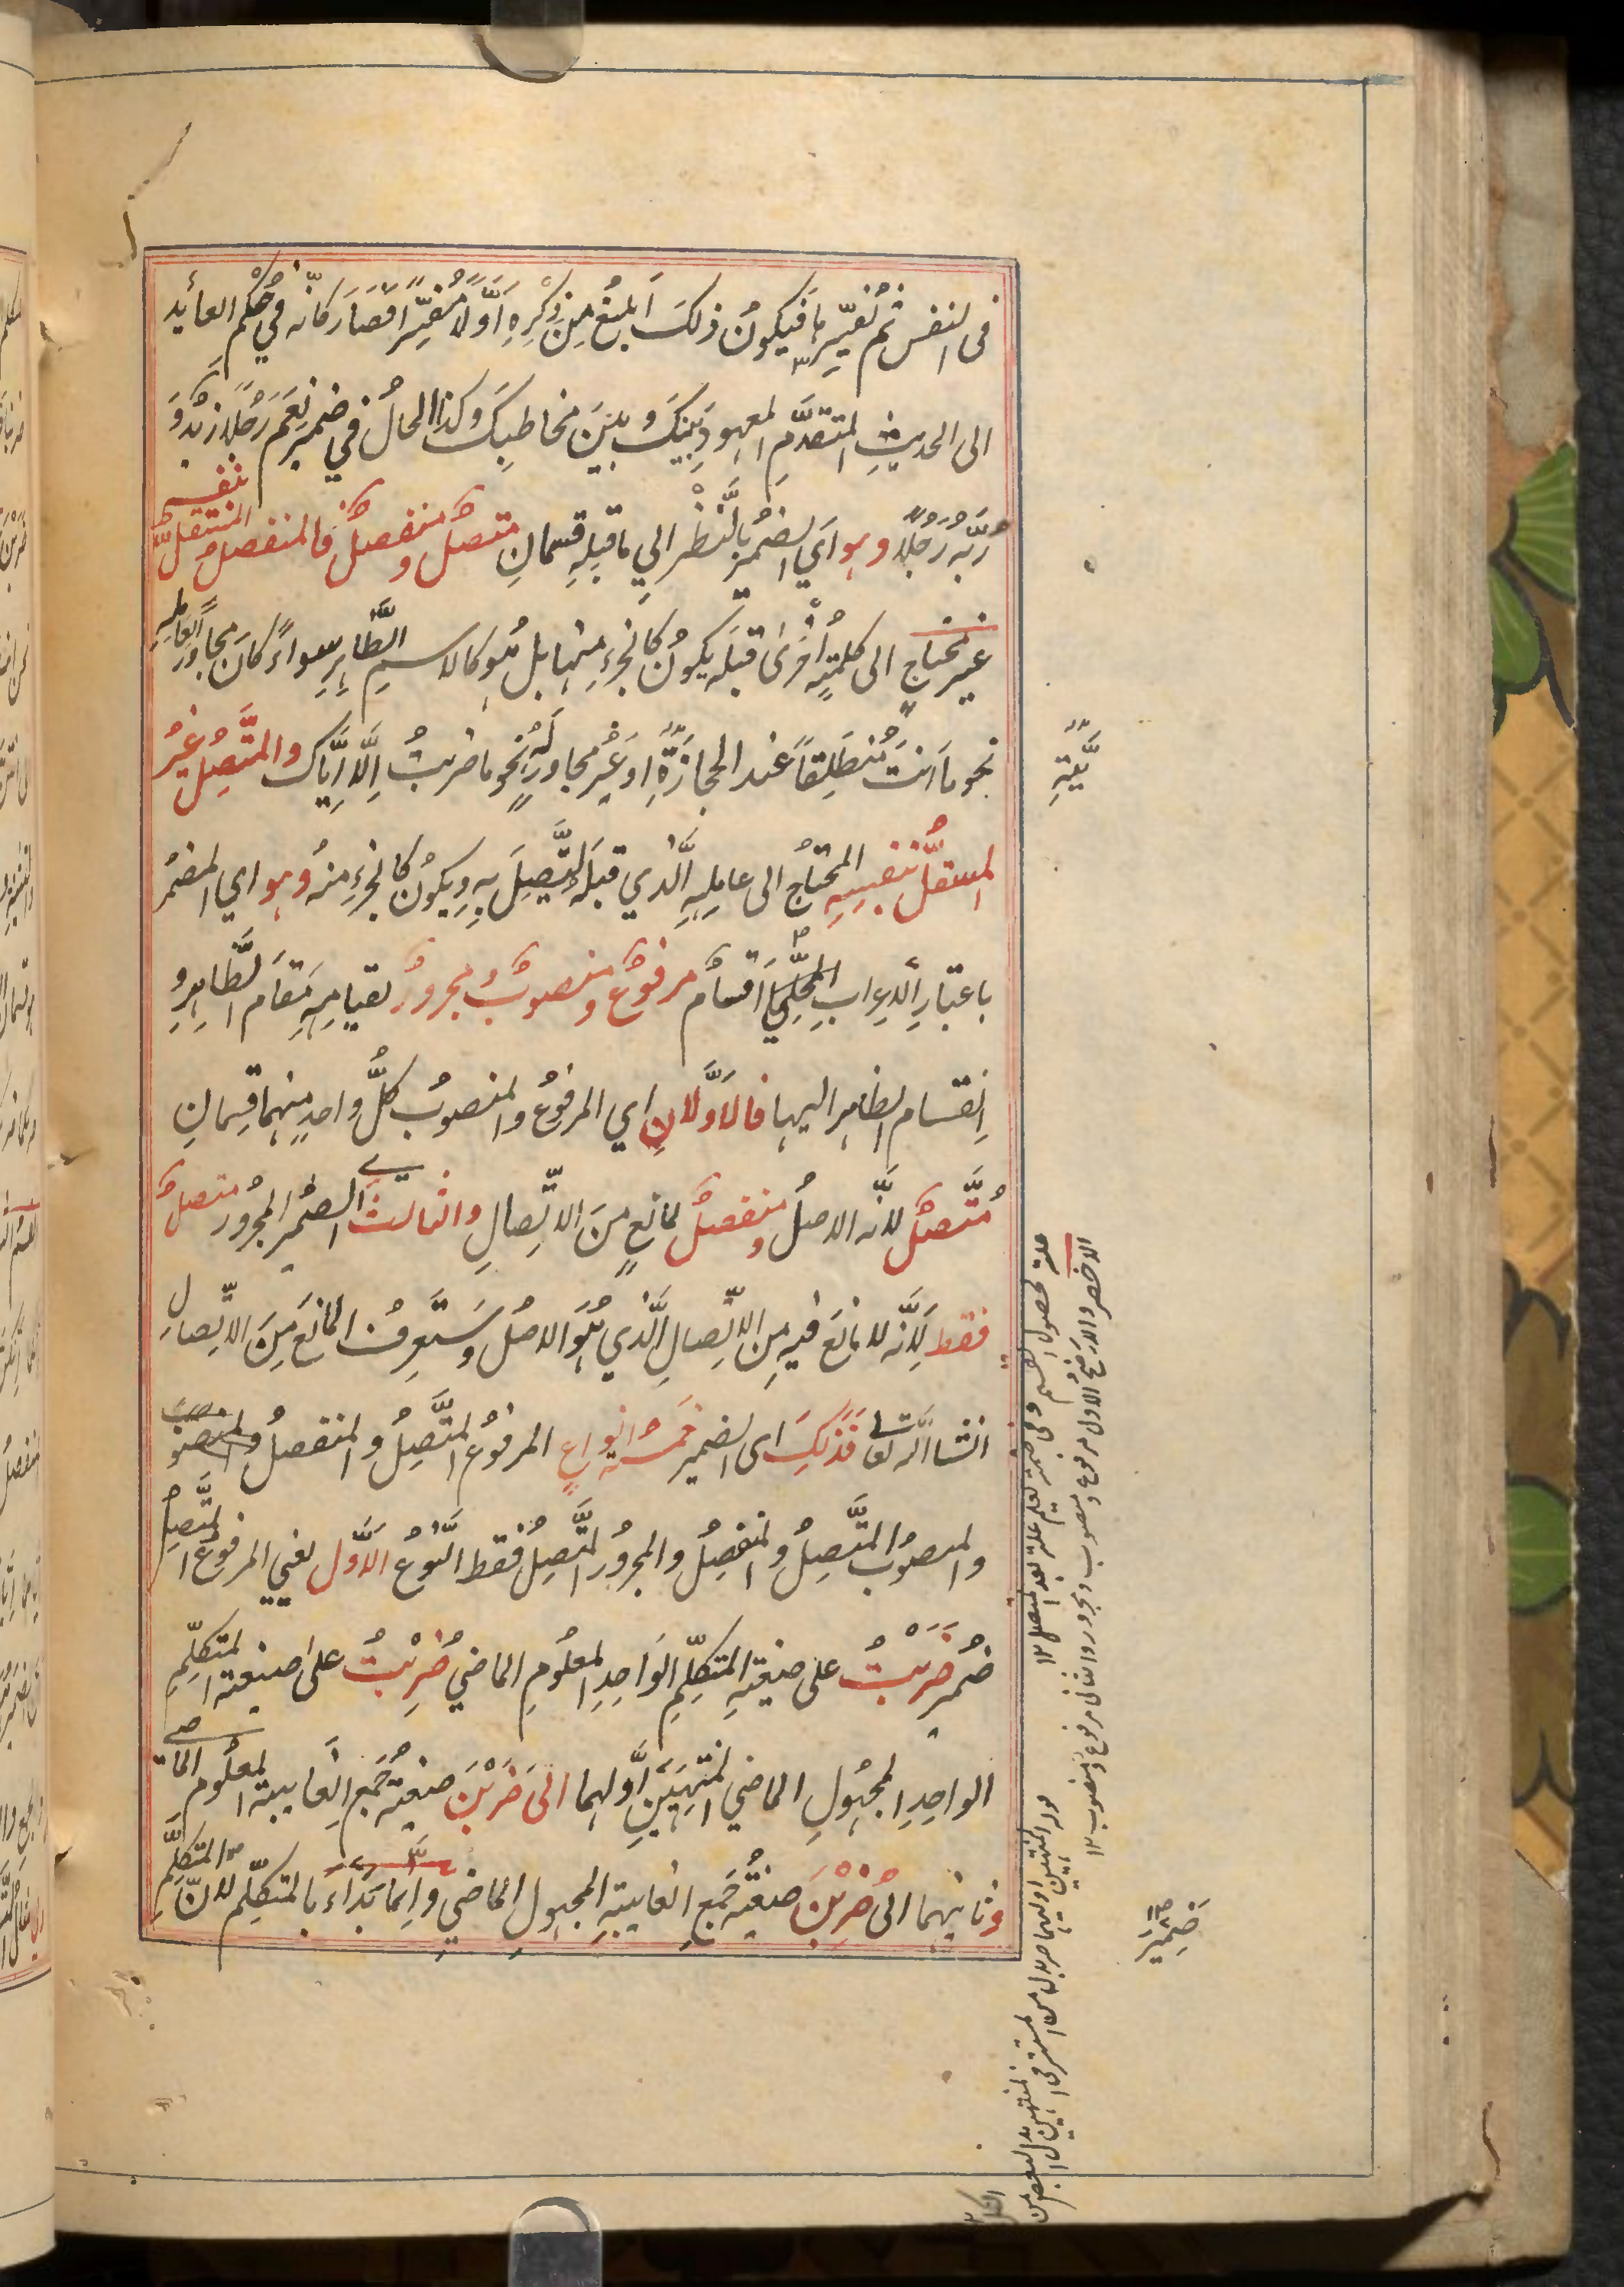 فى النفس ثم تُفسّيرها فيكونُ ذلكَ اَبلغ مِن ذِكْرِهِ اَوَّلًا مُفسِّرًا فَصَارَ كَانّه فِي حُكْمِ العائد
الى الحديثِ المتقدَّمِ المعهودِ بَينَكَ وبينَ مخاطبِكَ وكذا الحالُ في ضمير نِعْمَ رَجُلًا زيدٌ وَ
رُبّه رَجُلًا وهو اَي الضميرُ بالنَّظْرِ الى ما قبلِهِ قسمانِ متّصلٌ ومنفصلٌ فالمنفصلُ المستقلُّ بنفسه
غير محتاجٍ الى كلمةٍ اُخْرىٰ قبلَه يكونُ كالجزءِ منها بل هُو كالاسمِ الظَّاهِرِ سواءً كانَ مجاورًا لعاملِه
نحو ما اَنتَ مُنطَلِقًا عند الحجازيَّةِ او غَيْرَ مجاورٍ له نحو ما ضربتُ اِلَّا اِيَّاكَ والمتَّصِلُ غيرُ
المستقلِّ بنفسِهِ المحتاجُ الى عامِلِهِ الَّذي قبلَه ليتَّصِلَ بهِ ويكونُ كالجزءِ مِنهُ وهو اي المضمرُ
باعتبارِ الاعرابِ المحلِّي ٣ اَقسامٌ مرفوعٌ ومنصوبٌ ومجرورٌ لقيامِهِ مَقامَ الظَّاهِرِ و
اِنقسامِ الظاهرِ اليها فالاَوَّلانِ اي المرفوعُ والمنصوبُ كلُّ واحدٍ منهما قِسمانِ
مُتَّصِلٌ لانّه الاصلُ ومنفصلٌ لمانعٍ مِنَ الاتّصالِ والثالثُ اي الضميرُ المجرورُ متصلٌ
فقط لِاَنَّه لا مانعَ فيه مِن الاتّصالِ الَّذي هُوَ الاصلُ وسَتَعرِفُ المانعَ مِنَ الاتّصالِ
انشا الله تعالى فَذٰلِكَ اى الضمير خمسةُ انواعٍ المرفوعُ المتَّصِلُ والمنفصلُ
والمنصوبُ المتَّصِلُ والمنفصِلُ والمجرورُ المتَّصِلُ فقط النَّوعُ الاَوَّلُ يعني المرفوعَ المتَّصِلَ
ضميرُ ضَرَبْتُ على صيغةِ المتكلِّمِ الواحِدِ المعلُومِ الماضي وضُرِبْتُ على صيغة المتكلِّمِ
الواحِدِ المجهُولِ الماضي المنتهيَينِ اَوَّلهما الىٰ ضَرَبْنَ صيغةِ جَمعِ الغايبةِ المعلُومِ الماضي
وثانيهما الىٰ ضُرِبْنَ صيغةِ جَمعِ الغايبةِ المجهولِ الماضي واِنما بَدَاءَ بالمتكلِّم لانّ المتكلِّمَ
ضمير